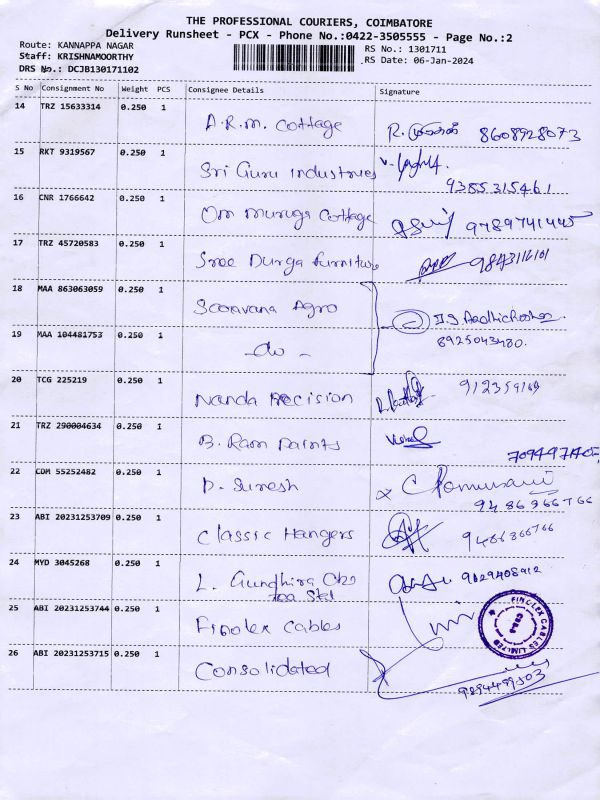 THE PROFESSIONAL COURIERS, COIMBATORE
Delivery Runsheet - PCX - Phone No.:0422-3505555 - Page No.:2
Route: KANNAPPA NAGAR
Staff: KRISHNAMOORTHY
DRS No.: DCJB130171102
RS No.: 1301711
RS Date: 06-Jan-2024
S No Consignment No Weight PCS Consignee Details Signature
14 TRZ 15633314 0.250 1 A.R.M. Cottage R. 8608928073
15 RKT 9319567 0.250 1 Sri Guru Industries 9385315461
16 CNR 1766642 0.250 1 Om Muruga Cottage 9789741445
17 TRZ 45720583 0.250 1 Sree Durga furniture 9843116101
18 MAA 863063059 0.250 1 Saravana Agro
19 MAA 104481753 0.250 1 -do- 8925043480.
20 TCG 225219 0.250 1 Nanda Precision
21 TRZ 290004634 0.250 1 B. Ram Paints
22 CDM 55252482 0.250 1 D. Suresh 9486366766
23 ABI 20231253709 0.250 1 Classic Hangers 9486366766
24 MYD 3045268 0.250 1 L. 9629408912
25 ABI 20231253744 0.250 1 Finolex Cables
FINOLEX CABLES LIMITED
26 ABI 20231253715 0.250 1 Consolidated 9894499503